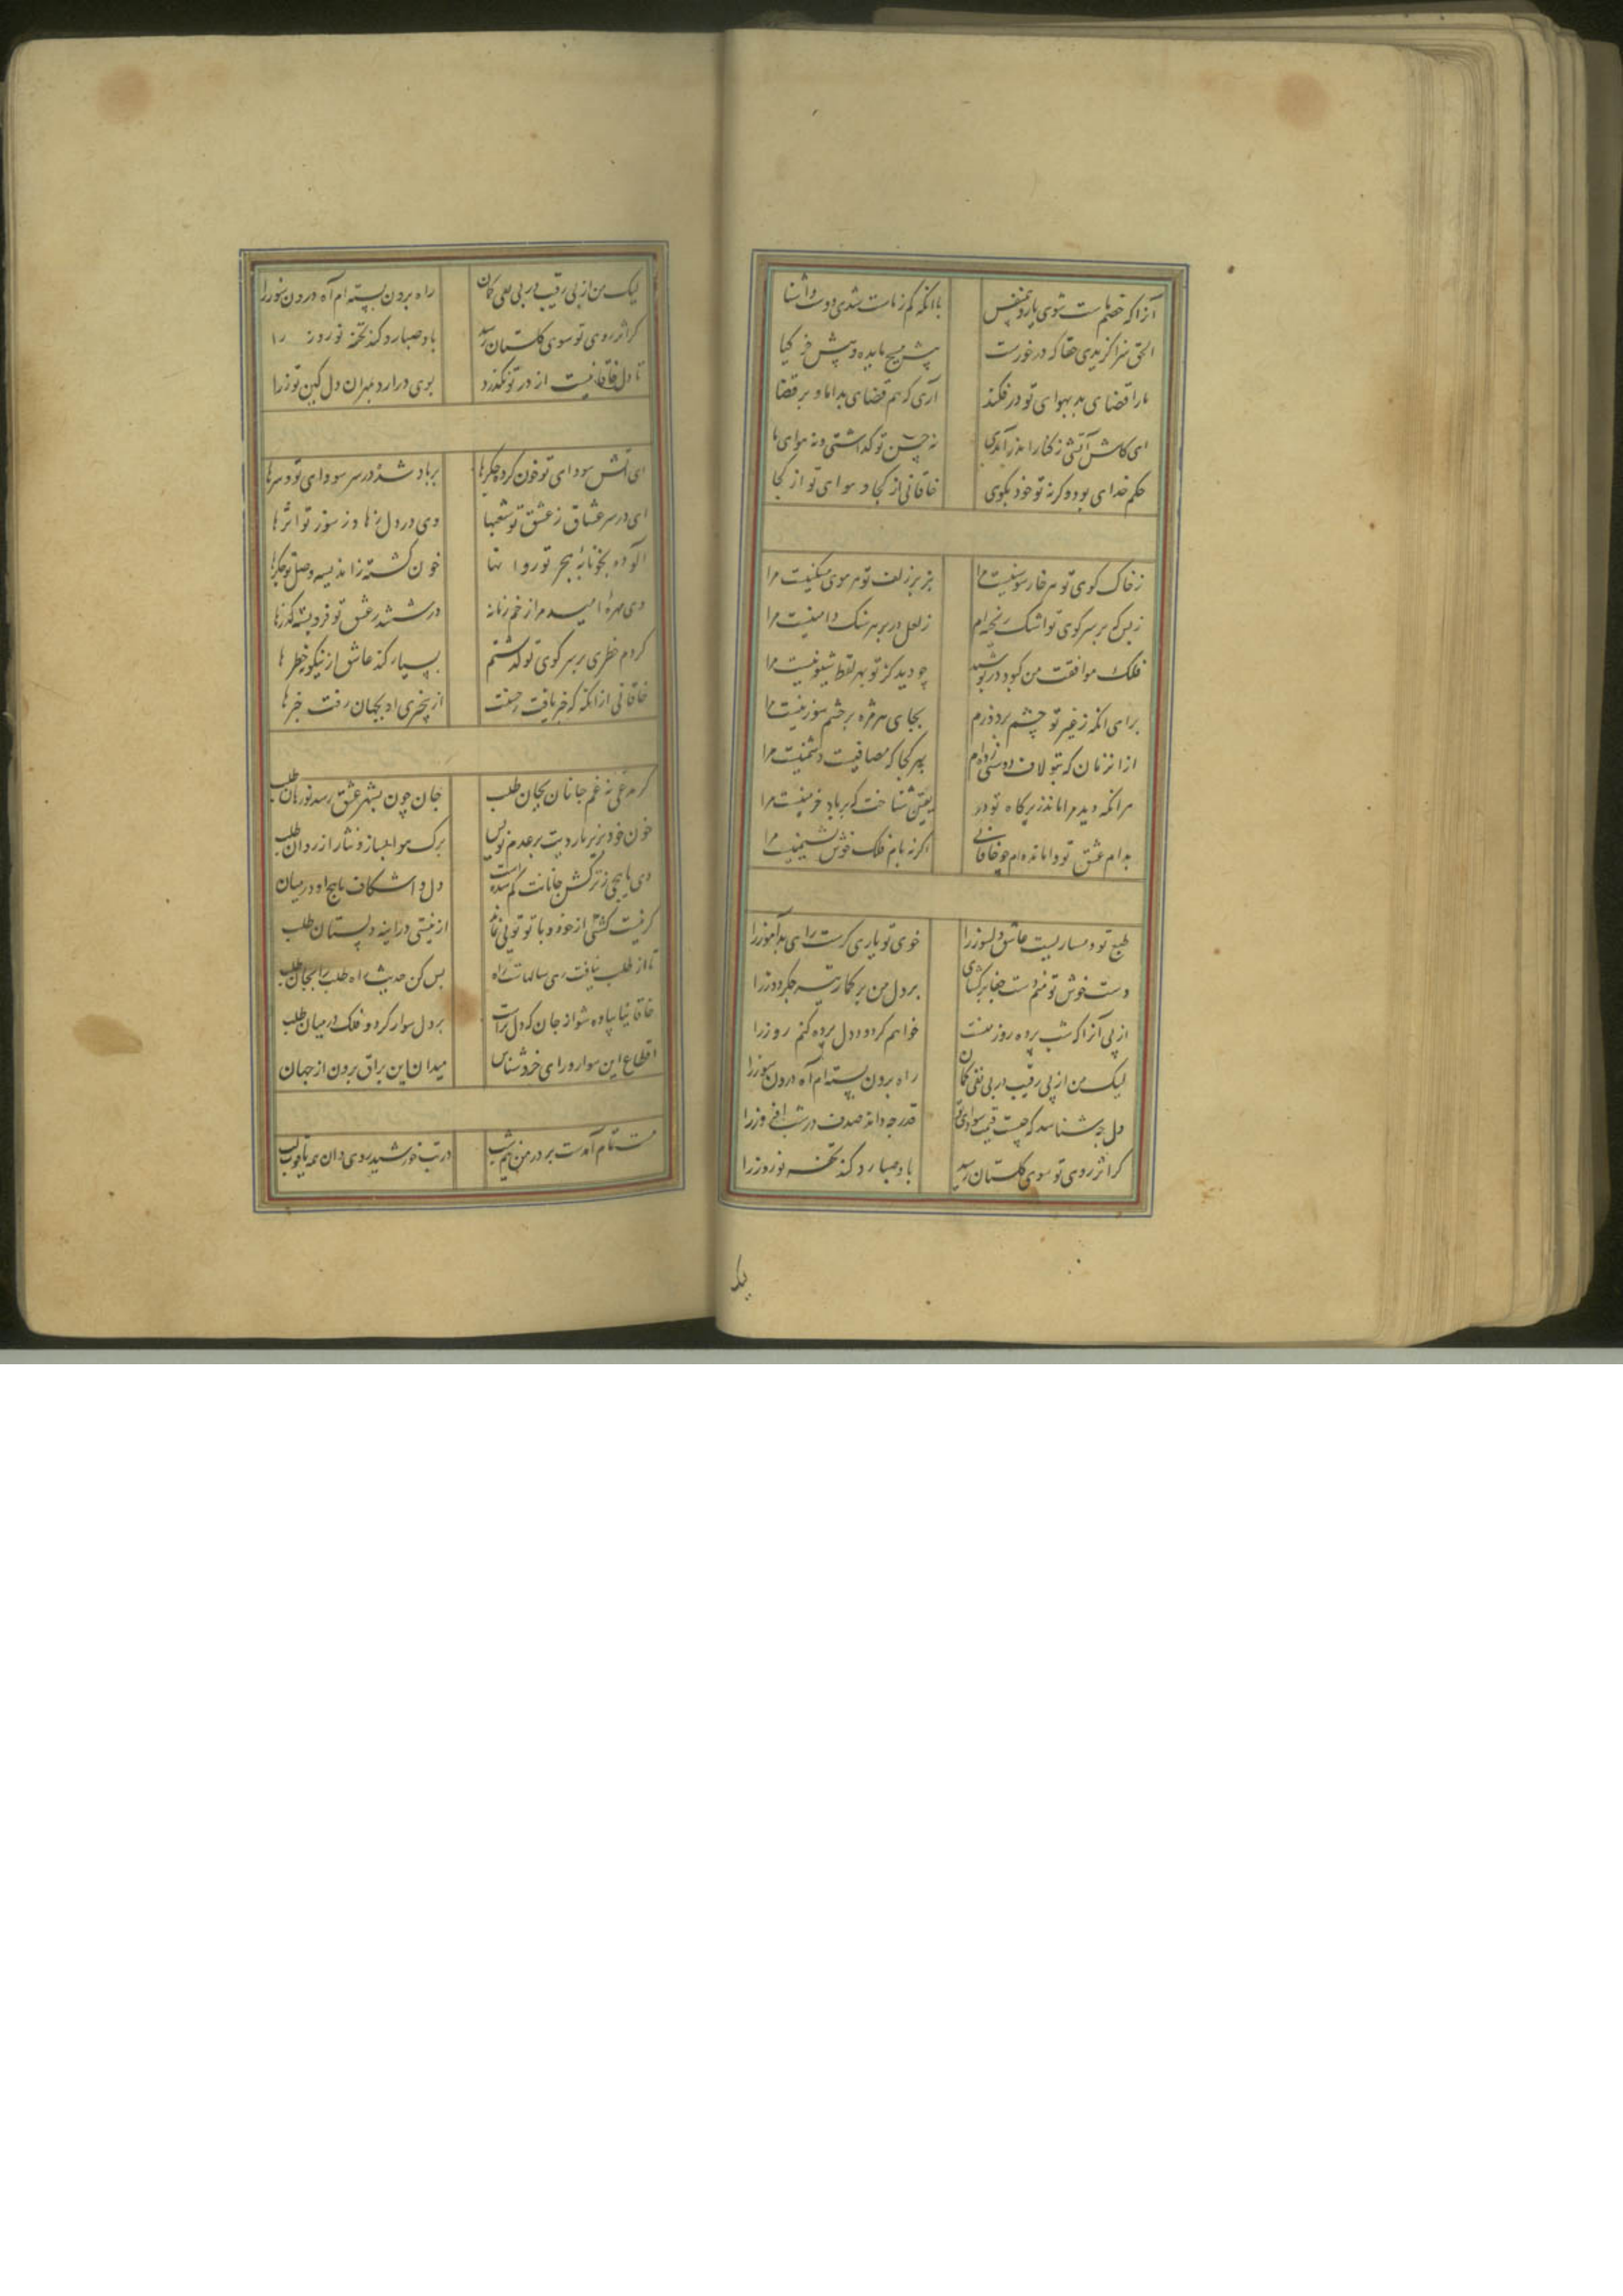 آنرا که خصم ماست شوی یار و همنفس
با آنکه کم ز ماست شدی دوست و آشنا
الحق سزا گزیدی حقا که درخورست
پیش مسیح مایده و پیش خر گیا
ما را قضای بد بهوای تو در فکند
آری که هم قضای بد اما و بر قضا
ای کاش آتشی ز کنار اندر آمدی
نه حسن تو گذاشتی و نه هوای ما
حکم خدای بود و گرنه تو خود بگوی
خاقانی از کجا و هوای تو از کجا
ز خاک کوی تو هر خار سوسنیست مرا
بزیر زلف تو هر موی مسکنیست مرا
ز بس که بر سر کوی تو اشک ریخته‌ام
ز لعل در بر هر سنگ دامنیست مرا
فلک موافقت من کبود درپوشید
چو دید کز تو بهر لحظه شیونیست مرا
برای آنکه ز غیر تو چشم بردوزم
بجای هر مژه بر چشم سوزنیست مرا
از آن زمان که بتو لاف دوستی زده‌ام
بهر کجا که مصافیست دشمنیست مرا
هر آنکه دید مرا مانده زیر کاه تو در
یقین شناخت که بر باد خرمنیست مرا
بدام عشق تو وامانده‌ام چو خاقانی
اگرنه بام فلک خوش نشیمنیست مرا
طبع تو دمساز نیست عاشق دلسوز را
خوی تو یاری گرست رای بدآموز را
دست خوش تو منم دست جفا برگشای
بر دل من برگمار تیر جگردوز را
از پی آنرا که شب پرده روز منست
خواهم کز دود دل پرده کنم روز را
لیک من از پی رقیب از پی نفی گمان
راه برون بسته‌ام آه درون سوز را
دل چه شناسد که چیست قیمت سودای تو
قدر چه داند صدف در شب افروز را
گر اثر روی تو سوی گلستان رسد
باد صبا رد کند تحفه نوروز را
لیک
لیک من از پی رقیب در پی نفی گمان
راه برون بسته‌ام آه درون سوز را
گر اثر روی تو سوی گلستان رسد
باد صبا رد کند تحفه نوروز را
تا دل خاقانیست از در تو نگذرد
بوی درآرد مهران دل کین توز را
ای آتش سودای تو خون کرده جگرها
بر باد شده در سر سودای تو سرها
ای در سر عشاق ز عشق تو شغبها
وی در دل زهاد ز سوز تو اثرها
آلوده بخونابه هجر تو روانها
خون گشته ز اندیشه وصل تو جگرها
وی مهره امید مرا زخم زمانه
در ششدر عشق تو فرو بسته گذرها
کردم خطری بر سر کوی تو گذشتم
بسیار کند عاشق ازینگونه خطرها
خاقانی از آنگه که خبر یافت ز عشقت
از بیخبری او بجهان رفت خبرها
گر مدعی نه غم جانان بجان طلب
جان چون بشهر عشق رسد نورهان طلب
خون خرد بریز و دیت بر عدم نویس
برگ هوا بساز و نثار از روان طلب
دی یاسجی ز ترکش جانانت گم شدست
دل واشکاف یاسج او در میان
گر نیست گشتی از خود و با تو تویی نماند
از نیستی در آینه دلستان طلب
تا از طلب بیافت رسی سالهاست راه
بس کن حدیث یافت طلب را بجان طلب
خاقانیا پیاده شو از جان که دل تراست
بر دل سوار گرد و فلک در میان طلب
اقطاع این سوار ورای خرد شناس
میدان این براق برون از جهان
مست تمام آمدست بر در من نیم شب